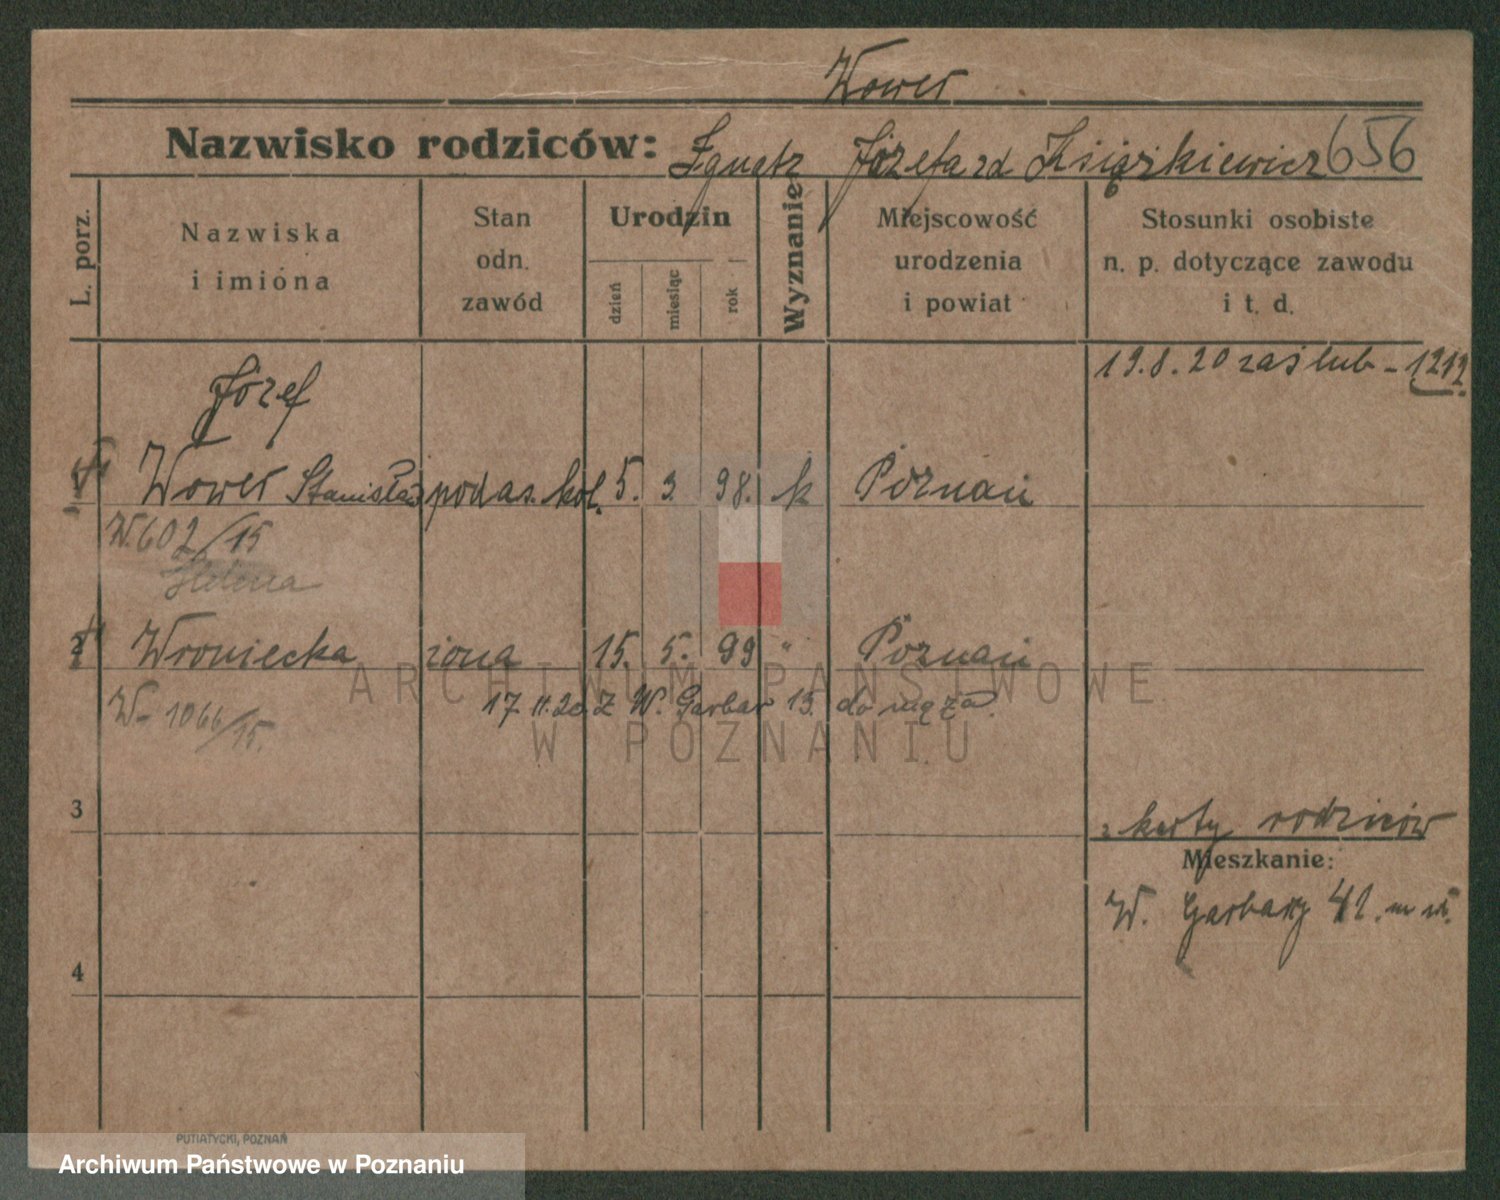 Wower
Nazwisko rodziców: Ignatz Józefa zd Książkiewicz 656
L. porz.
Nazwiska
i imióna
Stan
odn.
zawód
Urodzin
dzień
miesiąc
rok
Wyznanie
Miejscowość
urodzenia
i powiat
Stosunki osobiste
n. p. dotyczące zawodu
i t. d.
19.8.20 zaślub - 1212
Józef
Wower Stanisław podas. kol. 5. 3. 98. k Poznań
W.602/15
Helena
2 Wroniecka żona 15. 5. 99 " Poznań
W- 1066/15.
17 11.20 z W. Garbar 13. do męża.
3
z karty rodziców
Mieszkanie:
W. Garbary 41.
4
PUTIATYCKI, POZNAŃ
ARCHIWUM PAŃSTWOWE
W POZNANIU
Archiwum Państwowe w Poznaniu